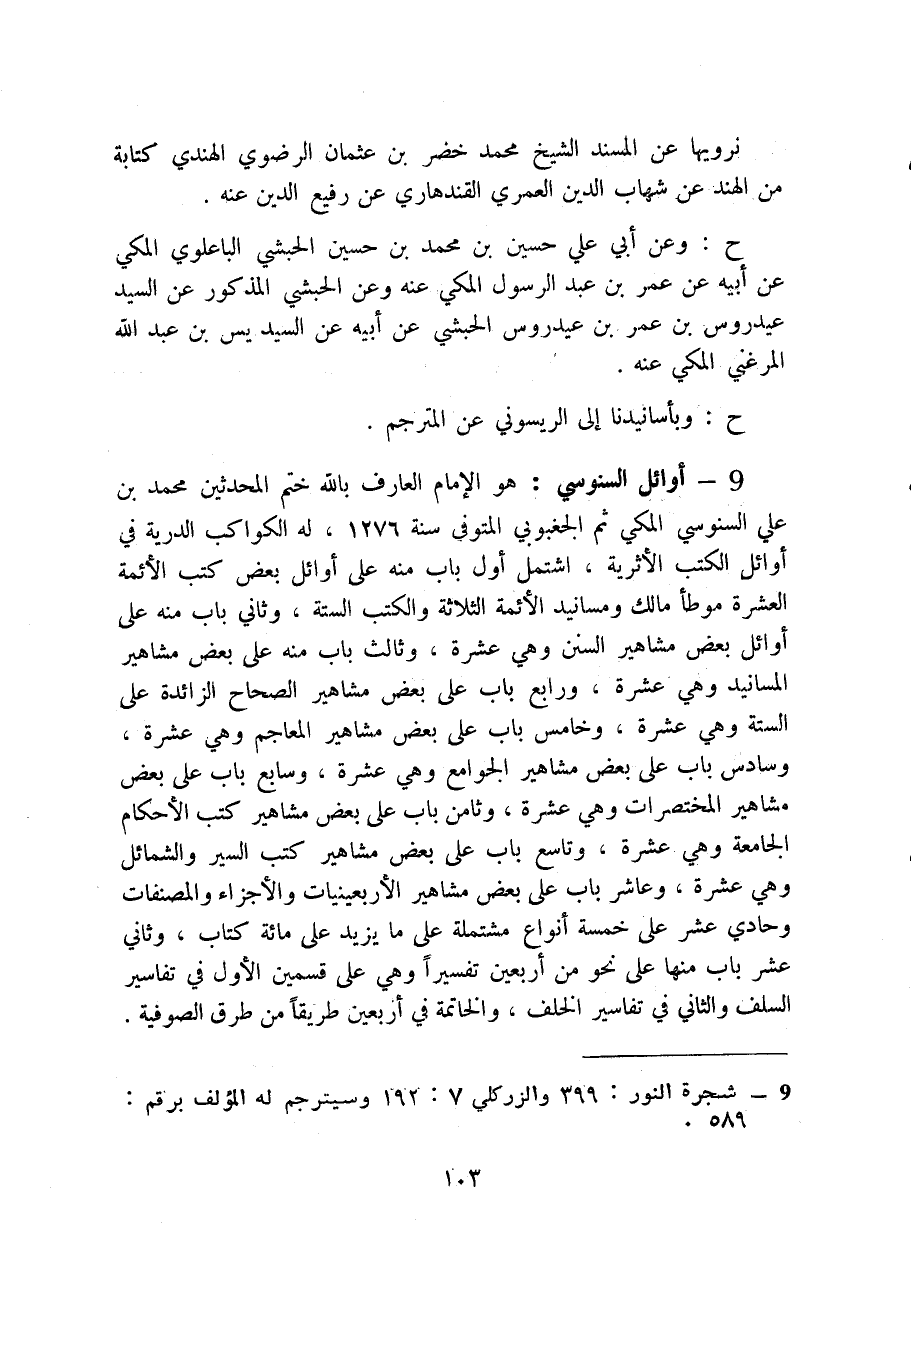 نرويها عن المسند الشيخ محمد خضر بن عثمان الرضوي الهندي كتابة
من الهند عن شهاب الدين العمري القندهاري عن رفيع الدين عنه .
ح : وعن أبي علي حسين بن محمد بن حسين الحبشي الباعلوي المكي
عن أبيه عن عمر بن عبد الرسول المكي عنه وعن الحبشي المذكور عن السيد
عيدروس بن عمر بن عيدروس الحبشي عن أبيه عن السيد يس بن عبد الله
المرغني المكي عنه .
ح : وبأسانيدنا إلى الريسوني عن المترجم .
9 – أوائل السنوسي : هو الإمام العارف بالله ختم المحدثين محمد بن
علي السنوسي المكي ثم الجغبوبي المتوفى سنة ١٢٧٦ ، له الكواكب الدرية في
أوائل الكتب الأثرية ، اشتمل أول باب منه على أوائل بعض كتب الأئمة
العشرة موطأ مالك ومسانيد الأئمة الثلاثة والكتب الستة ، وثاني باب منه على
أوائل بعض مشاهير السنن وهي عشرة ، وثالث باب منه على بعض مشاهير
المسانيد وهي عشرة ، ورابع باب على بعض مشاهير الصحاح الزائدة على
الستة وهي عشرة ، وخامس باب على بعض مشاهير المعاجم وهي عشرة ،
وسادس باب على بعض مشاهير الجوامع وهي عشرة ، وسابع باب على بعض
مشاهير المختصرات وهي عشرة ، وثامن باب على بعض مشاهير كتب الأحكام
الجامعة وهي عشرة ، وتاسع باب على بعض مشاهير كتب السير والشمائل
وهي عشرة ، وعاشر باب على بعض مشاهير الأربعينيات والأجزاء والمصنفات
وحادي عشر على خمسة أنواع مشتملة على ما يزيد على مائة كتاب ، وثاني
عشر باب منها على نحو من أربعين تفسيراً وهي على قسمين الأول في تفاسير
السلف والثاني في تفاسير الخلف ، والخاتمة في أربعين طريقاً من طرق الصوفية .
9 – شجرة النور : ٣٩٩ والزركلي ٧ : ١٩٢ وسيترجم له المؤلف برقم :
٥٨٩ .
١٠٣